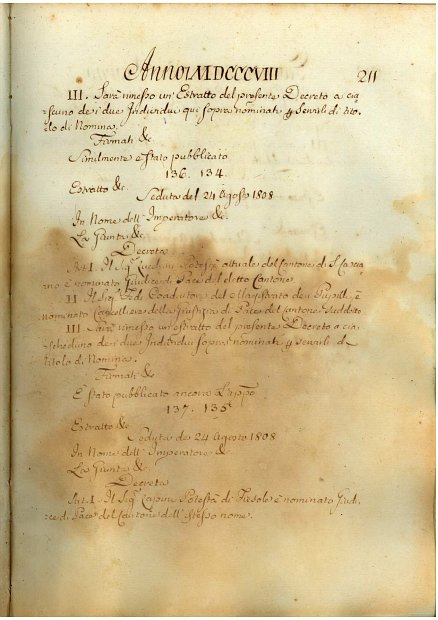 ANNO MDCCCVIII 211
III. Sarà rimesso un' Estratto del presente Decreto a cia-
scuno de i due Individui qui sopra nominati p servirli di tito-
lo di Nomina.
Firmati &c
Similmente è stato pubblicato
136. 134.
Estratto &c.
Seduta del 24 Agosto 1808
In Nome dell' Imperatore &c.
La Giunta &c.
Decreta
Art. I. Il Sigr. Potestà attuale del Cantone di S. Cascia-
no è nominato Giudice di Pace del detto Cantone
II Il Sigr. Coadiutore del Magistrato de i Pupilli, è
nominato Cancelliere della Giustizia di Pace del Cantone Suddetto
III Sarà rimesso un' estratto del presente Decreto a cia-
scheduno de i due Individui sopra nominati p servirli di
titolo di Nomina.
Firmati &c
È stato pubblicato ancora l'app.o
137. 135
Estratto &c
Seduta de 24 Agosto 1808
In Nome dell' Imperatore &c
La Giunta &c.
Decreta
Art. I. Il Sigr. Capini Potestà di Fiesole è nominato Giud-
ice di Pace del Cantone dell' istesso nome.